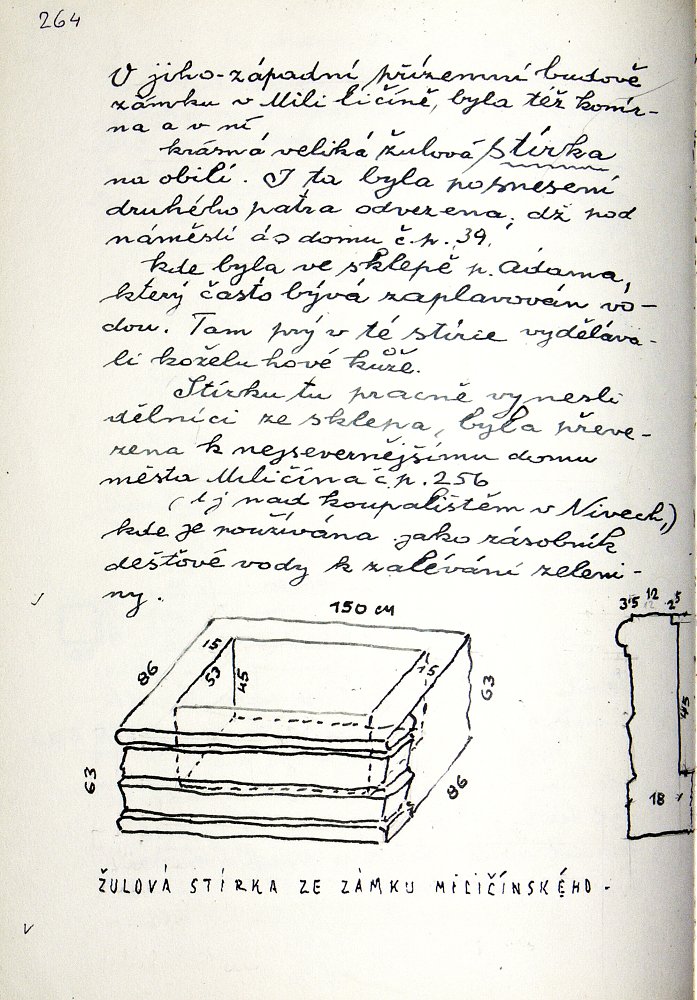 264
V jiho-západní přízemní budově
zámku v Mili ličíně, byla též komír-
na a v ní
krásná veliká žulová stírka
na obilí. I ta byla po snesení
druhého patra odvezena, dž pod
náměstí do domu č.p. 39,
kde byla ve sklepě p. Adama,
který často bývá zaplavován vo-
dou. Tam prý v té stírce vyděláva-
li koželuhové kůže.
Stírku tu pracně vynesli
dělníci ze sklepa, byla převe-
zena k nejsevernějšímu domu
města Miličína č.p. 256
(tj nad koupalištěm v Nivech,)
kde je používána jako zásobník
dešťové vody k zalévání zeleni-
ny.
150 cм
15
86
53
45
15
63
63
86
3'5 12 2⁵
12
45
18
ŽULOVÁ STÍRKA ZE ZÁMKU MILIČÍNSKÉHO-